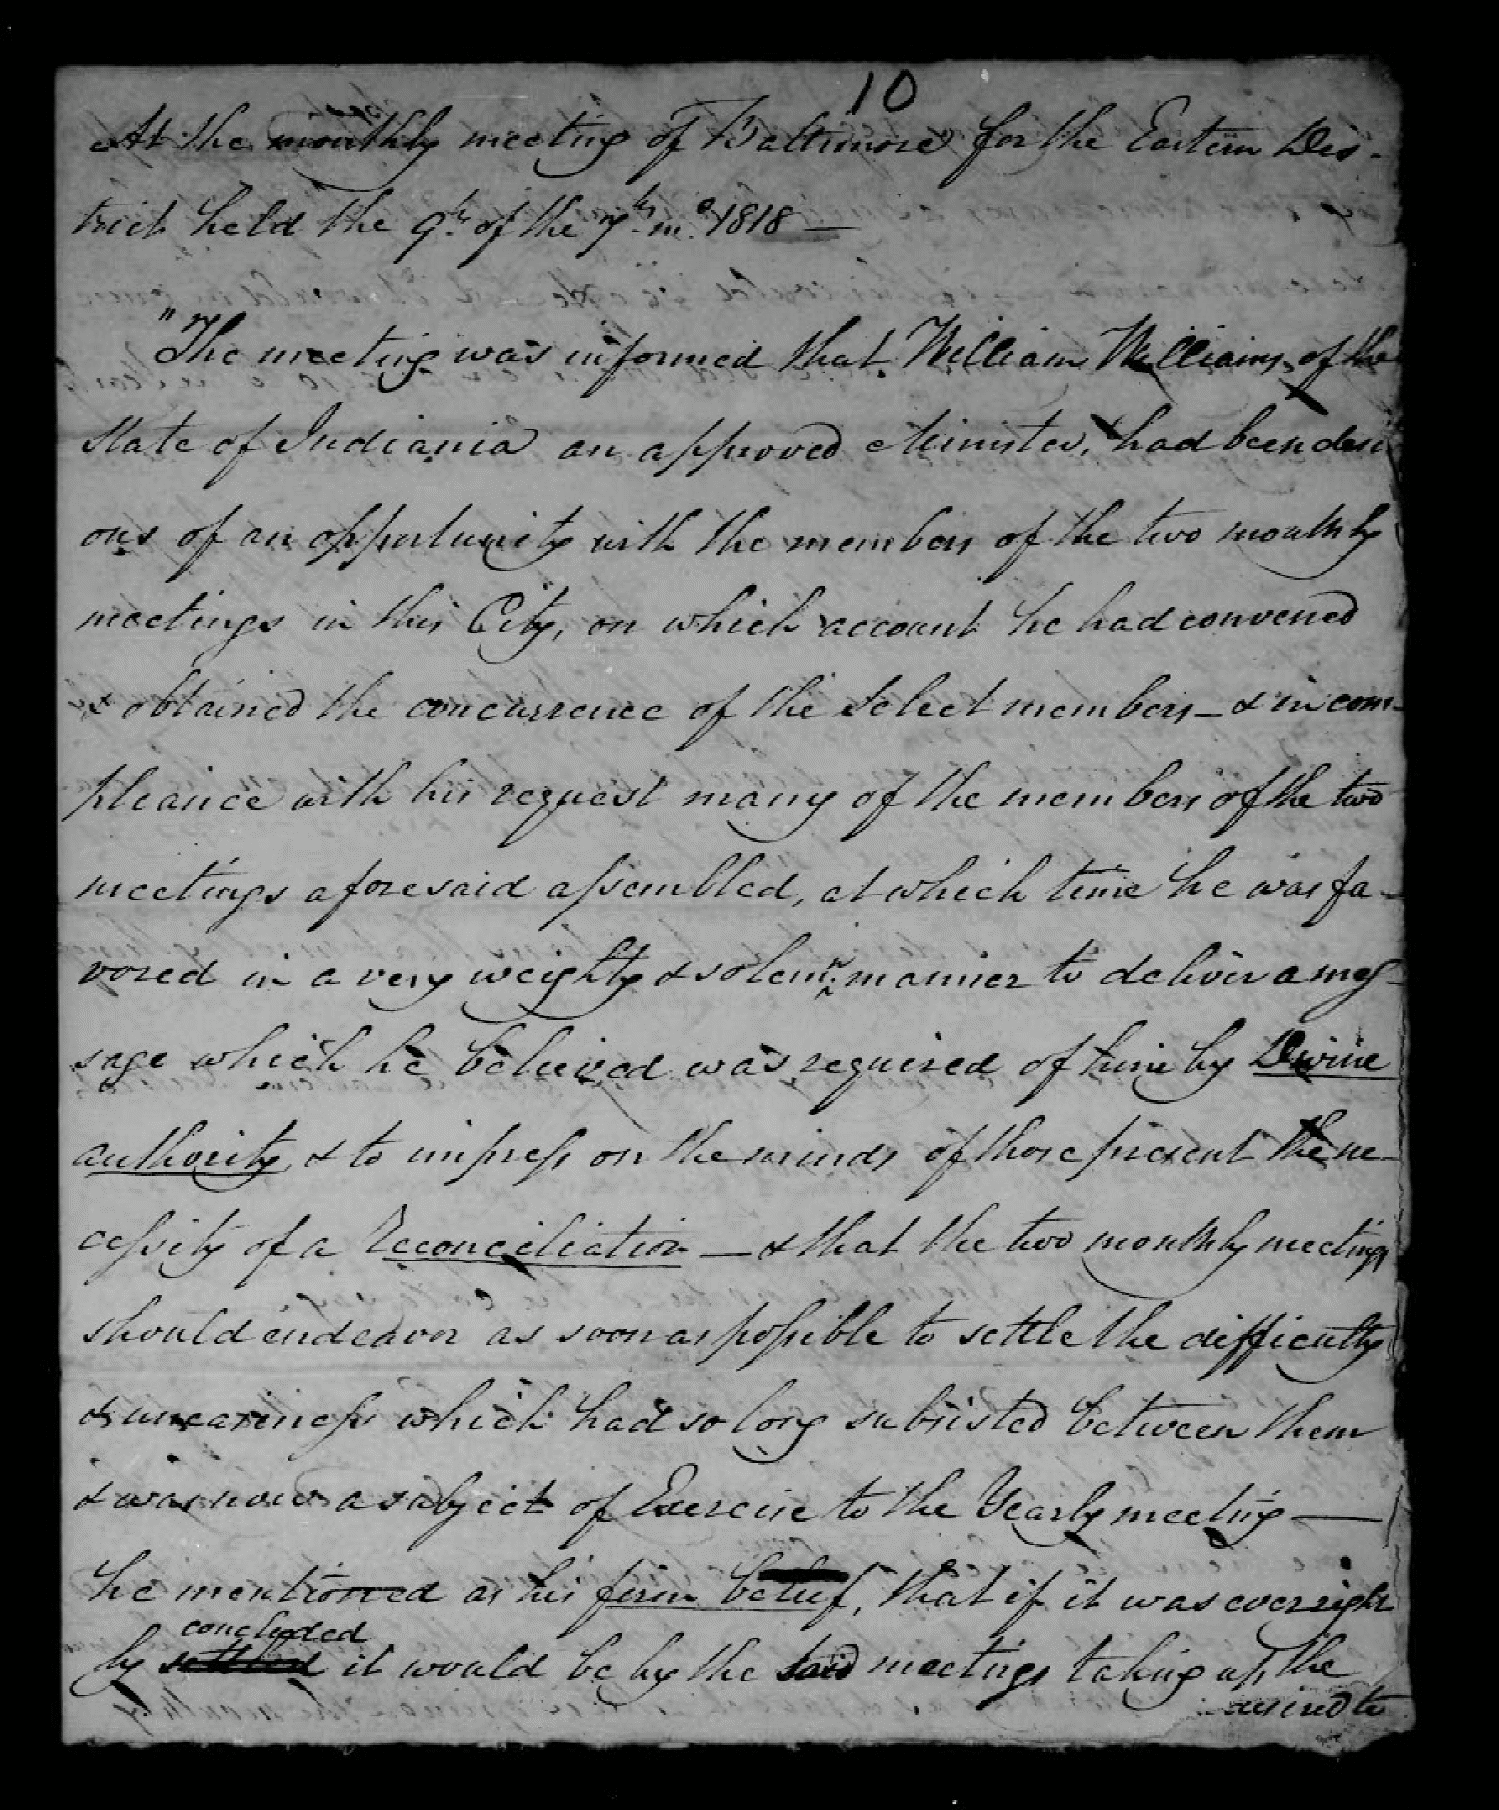 10
At the monthly meeting of Baltimore for the Eastern Dis-
trict held the 9th. of the 7th. mo. 1818 —
"The meeting was informed that William Williams, of the
State of Indiania an approved Minister, had been desi
ous of an opportunity with the members of the two monthly
meetings in this City, on which account he had convened
& obtained the concurrence of the Select members – & in com-
pleance with his request many of the members of the two
meetings aforesaid assembled, at which time he was fa-
vored in a very weighty & solemn manner to deliver a mes-
sage which he believed was required of him by Divine
authority & to impress on the minds of those present the ne-
cessity of a Reconciliation — & that the two monthly meetings
should endeavor as soon as possible to settle the difficulty
& uneasiness which had so long subsisted between them
& was now a subject of Exercise to the Yearly meeting —
he mentioned as his firm belief, that if it was ever right
concluded
ly settled it would be by the said meetings taking up the
desired to